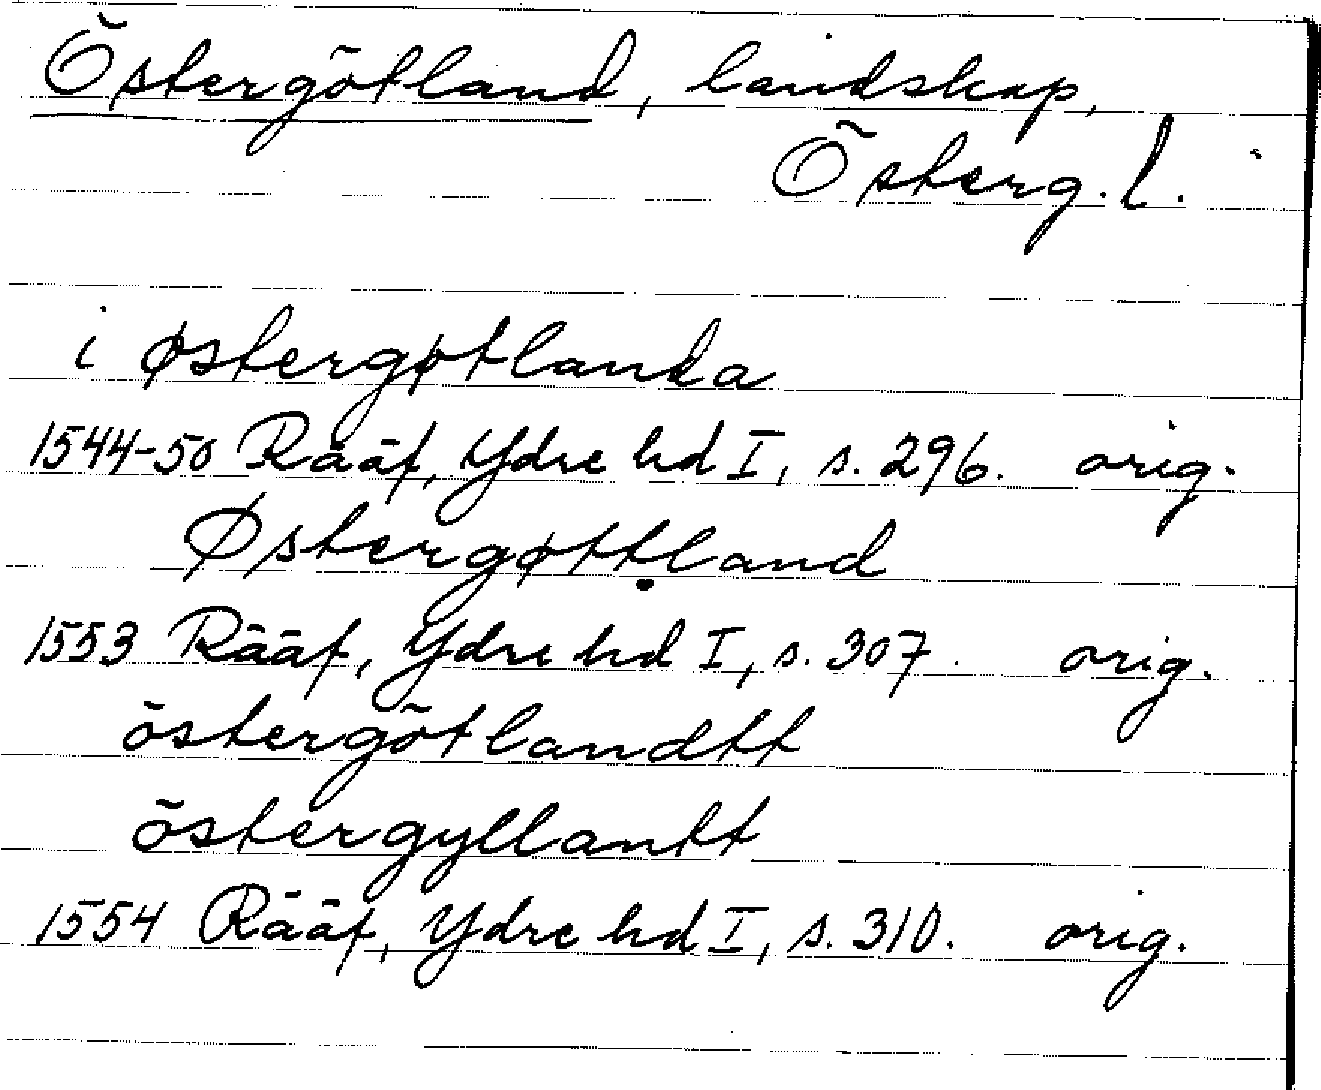 Östergötland, landskap,
Österg. l.
i østergøtlanda
1544-50 Rääf, Ydre hd I, s. 296. orig.
Østergøttland
1553 Rääf, Ydre hd I, s. 307. orig.
östergötlandtt
östergyllantt
1554 Rääf, Ydre hd I, s. 310. orig.